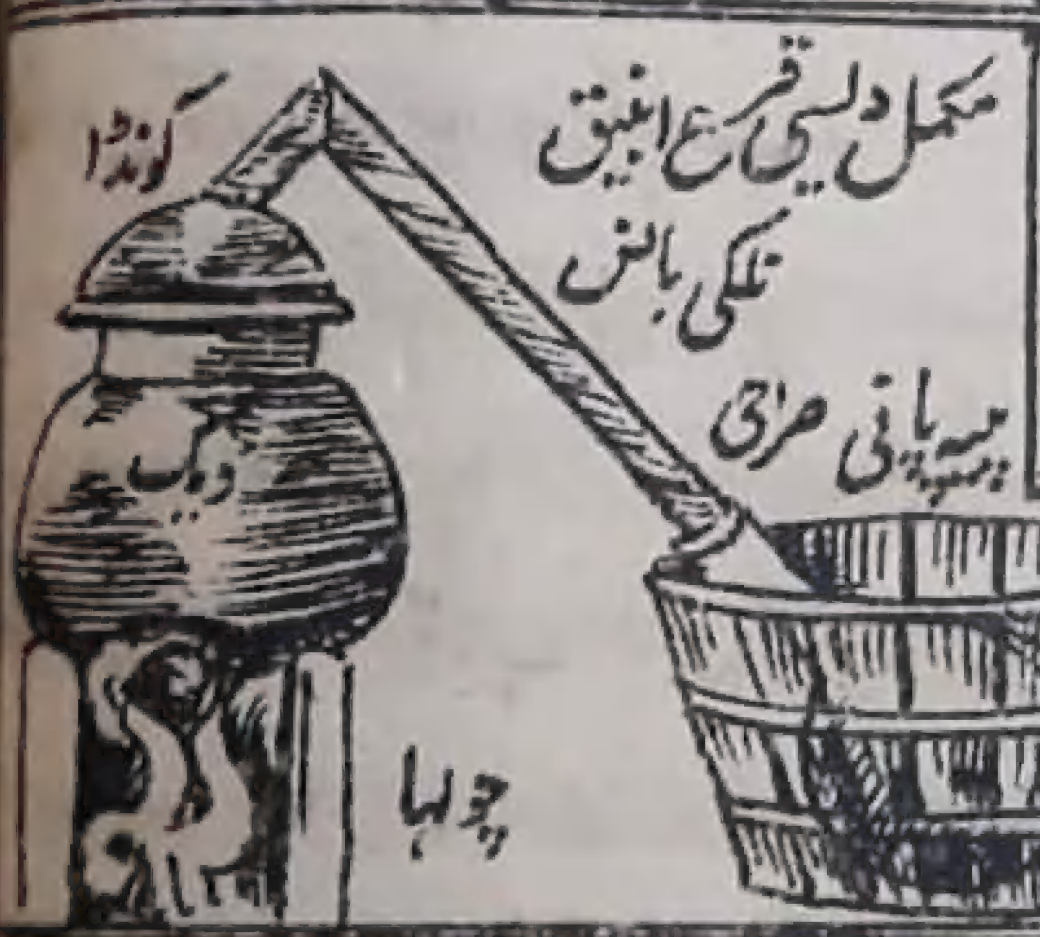 مکمل دلیسی قرع انبیق
نلکی بانس
کونڈا
پیپہ پانی صراحی
دیگ
چولہا